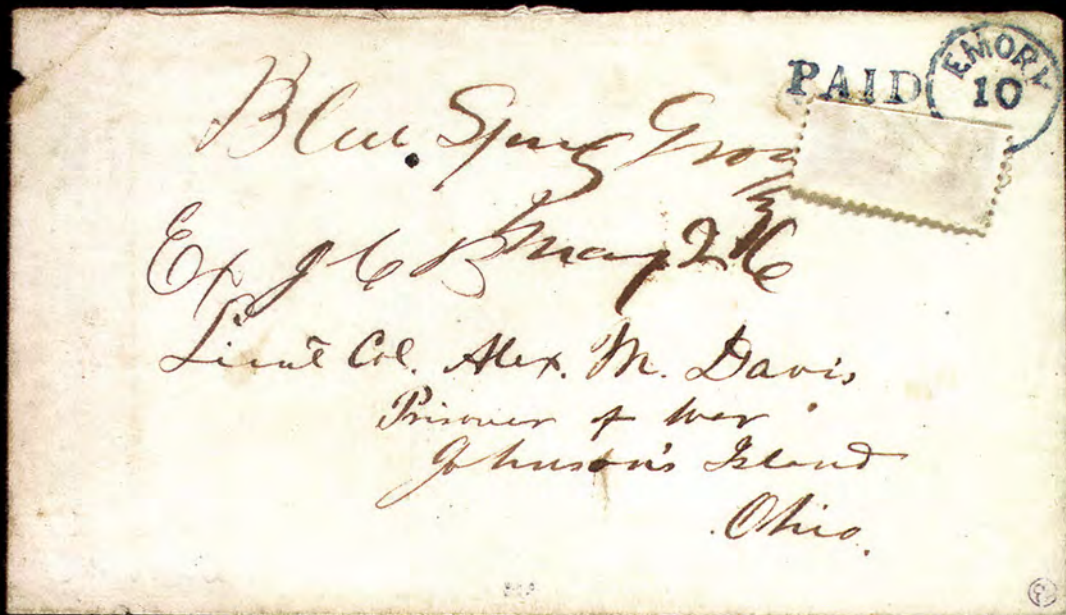 PAID
EMORY
10
Blue Spring Grove
Ex J C B May 2
Lieut Col. Alex. M. Davis
Prisoner of War
Johnson's Island
Ohio.